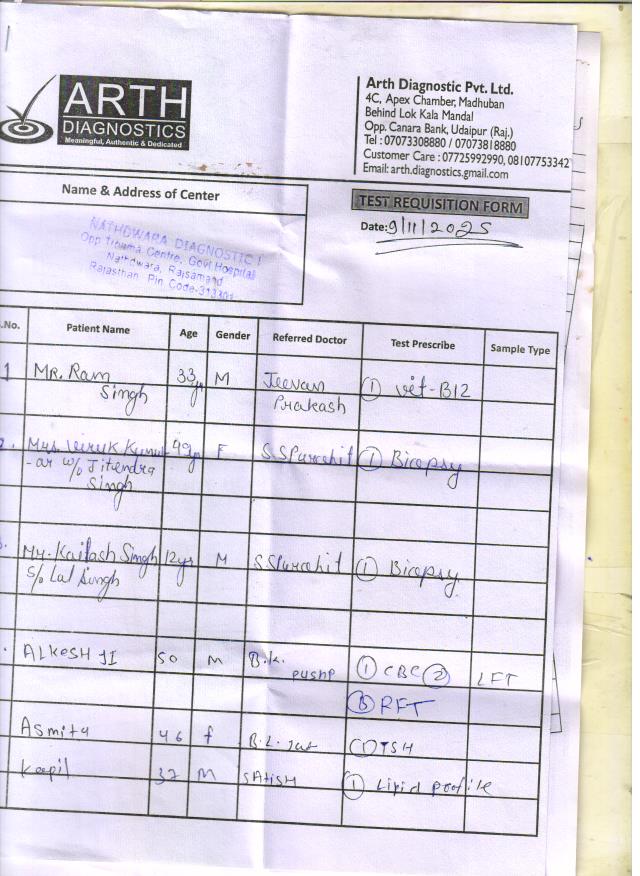 ARTH
DIAGNOSTICS
Meaningful, Authentic & Dedicated
Arth Diagnostic Pvt. Ltd.
4C, Apex Chamber, Madhuban
Behind Lok Kala Mandal
Opp. Canara Bank, Udaipur (Raj.)
Tel : 07073308880 / 07073818880
Customer Care : 07725992990, 08107753342
Email: arth.diagnostics.gmail.com
Name & Address of Center
NATHDWARA DIAGNOSTIC
Opp Trauma Centre, Govt Hospital
Nathdwara, Rajsamand
Rajasthan Pin Code-313301
TEST REQUISITION FORM
Date: 9/11/2025
.No. Patient Name Age Gender Referred Doctor Test Prescribe Sample Type
1 Mr. Ram 33 M Jeevan ① vit-B12
Singh yr Prakash
Mrs. 49yr F S S Purohit ① Biopsy
-ar w/o Jitendra
Singh
Mr. Kailash Singh 12yr M S S Purohit ① Biopsy
S/o Lal Singh
ALKESH JI 50 M B.K. ① CBC ② LFT
pushp
③ RFT
Asmita 46 f B.L. ① TSH
Kapil 37 M SAtiSH ① Lipid profile